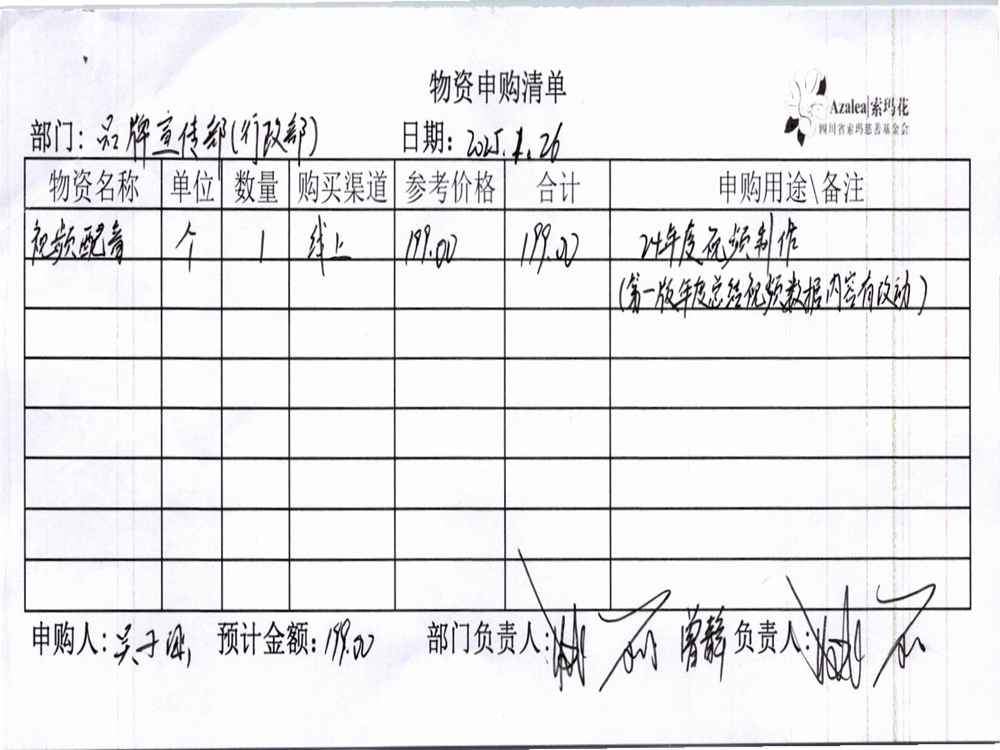 物资申购清单
Azalea|索玛花
四川省索玛慈善基金会
部门：品牌宣传部(行政部) 日期：2025.1.26
物资名称 单位 数量 购买渠道 参考价格 合计 申购用途\备注
视频配音 个 1 线上 199.00 199.00 24年度视频制作
(第一版年度总结视频数据内容有改动)
申购人： 预计金额：199.00 部门负责人： 曾静 负责人：